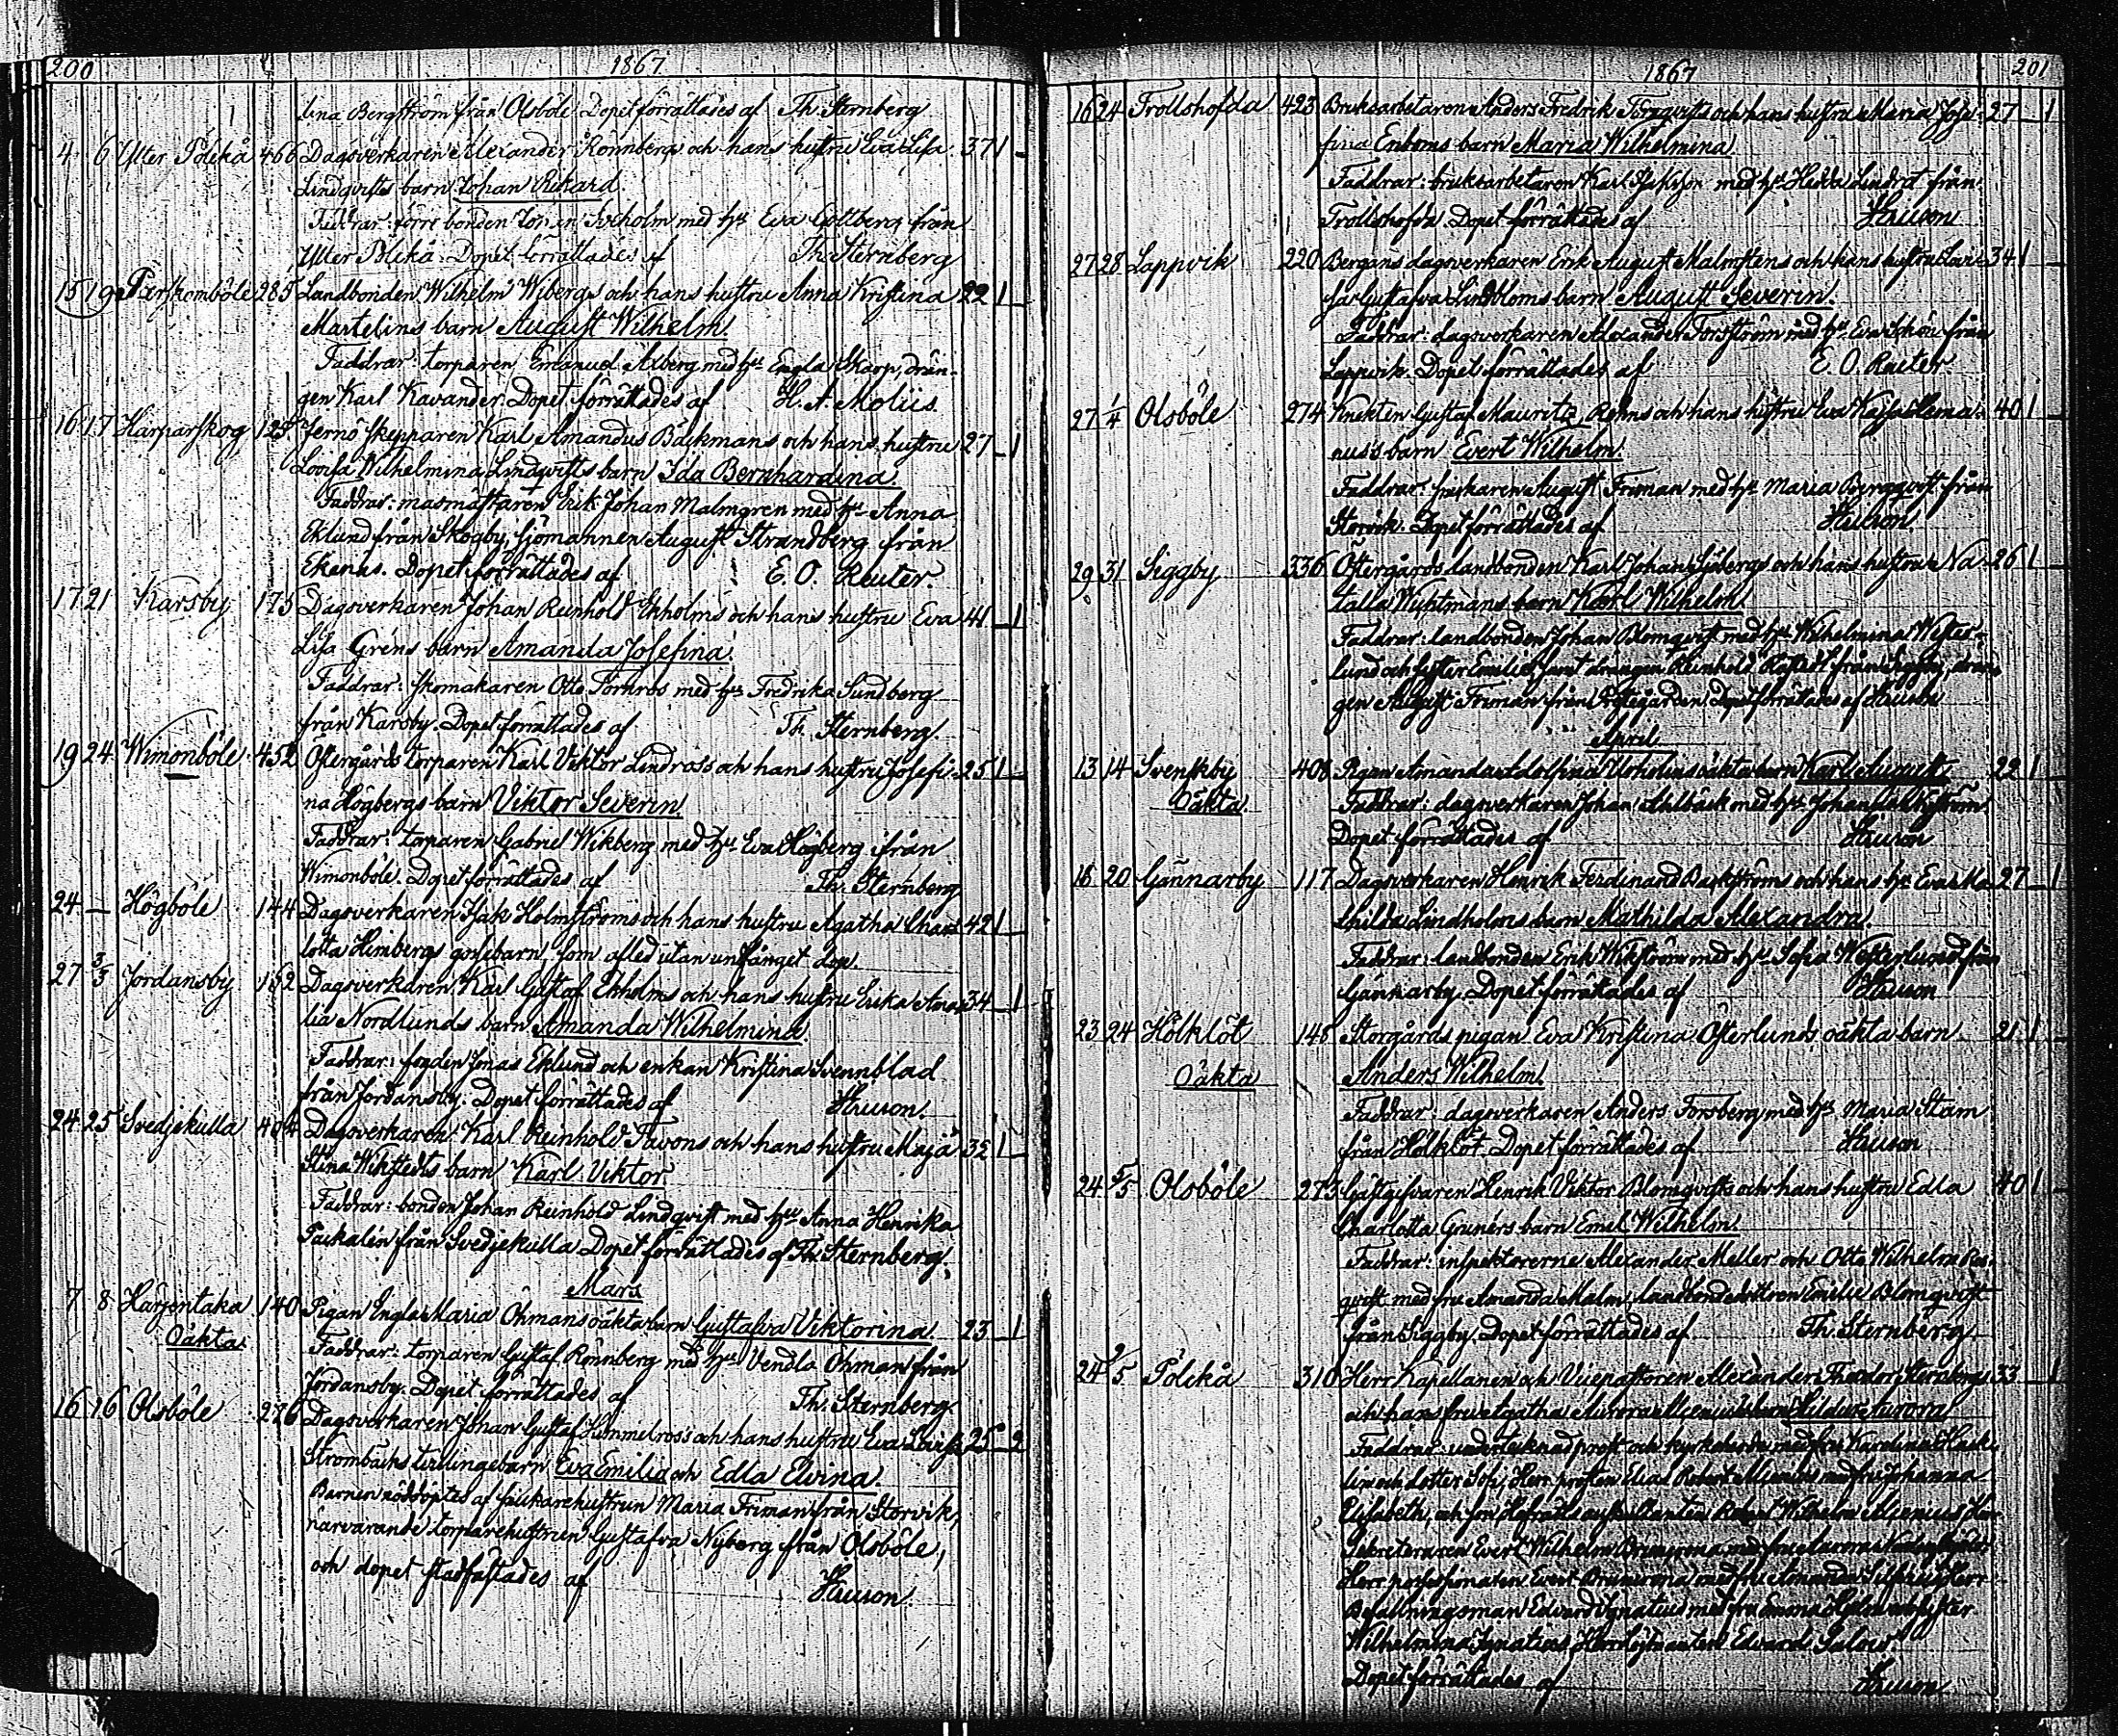 200 1867
lina Bergström från Olsböle. Dopet förrättades af Th. Sternberg
4 6 Ytter Polkå 466 Dagsverkaren Alexander Rönnbergs och hans hustru Eva Lisa 37 1
Lindqvists barn Johan Rikard.
Faddrar: förre bonden Ekholm med hu Eva Gottberg från
Ytter Polkå. Dopet förrättades af Th. Sternberg
15 19 285 Landbonden Wilhelm Wibergs och hans hustru Anna Kristina 22 1
Martelins barn August Wilhelm.
Faddrar: torparen Emanuel Alberg med hu Engla Skarp, drän-
gen Karl Kavander. Dopet förrättades af H. A. Molüs.
16 17 Harparskog 125 Jernö skepparen Karl Amandus Bäckmans och hans hustru 27 1
Lovisa Wilhelmina Lindqvists barn Ida Bernhardina.
Faddrar: masmästaren Erik Johan Malmgren med hu Anna
Eklund från Skogby, sjömannen August Strandberg från
Ekenäs. Dopet förrättades af E. O. Reuter.
17 21 Karsby 175 Dagsverkaren Johan Reinhold Ekholms och hans hustru Eva 41 1
Lisa Gréns barn Amanda Josefina.
Faddrar: skomakaren Otto Tornros med hu Fredrika Sundberg
från Karsby. Dopet förrättades af Th. Sternberg.
19 24 Wimonböle 452 Östergårds torparen Karl Viktor Lindross och hans hustru Josefi- 25 1
na Högbergs barn Viktor Severin.
Faddrar: torparen Gabriel Wikberg med hu Eva Högberg ifrån
Wimonböle. Dopet förrättades af Th. Sternberg
24 — Högböle 144 Dagsverkaren Isak Holmströms och hans hustru Agatha Char- 42 1
lotta Himbergs gossebarn, som afled utan undfånget dop.
27 3/3 Jordansby 152 Dagsverkaren Karl Gustaf Ekholms och hans hustru Erika Ama- 34 1
lia Nordlunds barn Amanda Wilhelmina
Faddrar: fogden Jonas Eklund och enkan Kristina Svennblad
från Jordansby. Dopet förrättades af
24 25 Svedjekulla 404 Dagsverkaren Karl Reinhold Tavons och hans hustru Maja 32 1
Stina Wikstedts barn Karl Viktor.
Faddrar: bonden Johan Reinhold Lindqvist med hu Anna Henrika
Paikalén från Svedjekulla Dopet förrättades af Th. Sternberg.
Mars
7 8 Harjentaka 140 Pigan Engla Maria Öhmans oäkta barn Gustafva Viktorina 23 1
Oäkta
Faddrar: torparen Gustaf Rönnberg med hu Vendla Öhman från
Jordansby. Dopet förrättades af Th. Sternberg.
16 16 Olsböle 276 Dagsverkaren Johan Gustaf Himmelross och hans hustru Eva Lovisa 25 2
Strömbäcks tvillingebarn Eva Emilia och Edla Elvina.
Barnen nöddoptes af fiskarehustrun Maria Friman från Storvik,
närvarande torparehustrun Gustafva Nyberg från Olsböle,
och dopet stadfästades af
1867 201
16 24 Trollshofda 423 Bruksarbetaren Anders Fredrik Törnqvists och hans hustru Maria Jose- 27 1
fina Enboms barn Maria Wilhelmina.
Faddrar: bruksarbetaren Karl med hu Hedda Lindrot från
Trollshofda. Dopet förrättades af
27 28 Lappvik 220 Bergans dagsverkaren Erik August Malmstens och hans hustru 34 1
Gustafva Lindbloms barn August Severin.
Faddrar: dagsverkaren Alexander Forsström med hu Eva Schön från
Lappvik. Dopet förrättades af E. O. Reuter.
27 1/4 Olsböle 274 Knekten Gustaf Mauritz Rehns och hans hustru Eva Kajsa 40 1
barn Evert Wilhelm.
Faddrar: fiskaren August Friman med hu Maria Bergqvist från
Storvik. Dopet förrättades af
29 31 Siggby 336 Östergårds landbonden Karl Johan Sjöbergs och hans hustru Na- 26 1
talia Wiktmans barn Karl Wilhelm
Faddrar: landbonden Johan Blomqvist med hu Wilhelmina Wester-
lund och syster Emilie, samt drängen Reinhold från Siggby, drän-
gen August Friman från Prestegården. Dopet förrättades af
April
13 14 Svenskby 408 Pigan Amanda Adolfina oäkta barn Karl August. 22 1
Oäkta
Faddrar: dagsverkaren Johan Ahlbäck med hu Johanna
Dopet förrättades af
18 20 Gännarby 117 Dagsverkaren Henrik Ferdinand Backströms och hans hu Eva Ma- 27 1
thilda Lindholms barn Mathilda Alexandra.
Faddrar: landbonden Erik Wikström med hu Sofia Westerlund från
Gännarby. Dopet förrättades af
23 24 Hölklöt 148 Storgårds pigan Eva Kristina Österlunds oäkta barn 21 1
Oäkta
Anders Wilhelm.
Faddrar: dagsverkaren Anders Forsberg med hu Maria Stam
från Hölklöt. Dopet förrättades af
24 5/5 Olsböle 273 Gästgifvaren Henrik Viktor Blomqvists och hans hustru Edla 40 1
Charlotta Grunérs barn Emel Wilhelm.
Faddrar: inspektorerne Alexander Meller och Otto Wilhelm
qvist med fru Amanda Malm, landbondedottren Emilie Blomqvist
från Siggby. Dopet förrättades af Th. Sternberg
24 9/5 Polkå 310 Herr Kapellanen och Vicepastoren Alexander Theodor Sternbergs 33 1
och hans fru Agatha Aurora barn Hildur Aurora
Faddrar: undertecknad prost och kyrkoherde med fru Karolina
och dotter Herr prosten Elias Robert Alcenius med fru Johanna
Elisabeth, och son Hofrättsauskultanten Robert Wilhelm Alcenius
Sekreteraren Evert Wilhelm med fru Aurora
Herr possessionaten Evert med fru Amanda Herr
Befallningsman Edvard Ignatius med fru Emma
Wilhelmina Ignatius, Herr Löjtnanten Edvard
Dopet förrättades af